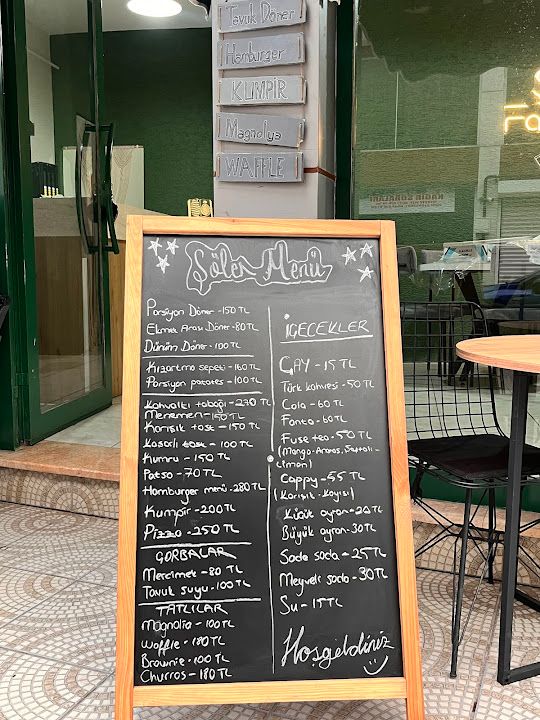 Tavuk Döner
Hamburger
KUMPİR
Magnolya
WAFFLE
Şölen Menü
Porsiyon Döner - 150 TL
Ekmek Arası Döner - 80 TL
Dürüm Döner - 100 TL
Kızartma sepeti - 160 TL
Porsiyon patates - 100 TL
Kahvaltı tabağı - 270 TL
Menemen - 150 TL
Karışık tost - 150 TL
Kaşarlı tost - 100 TL
Kumru - 150 TL
Patso - 70 TL
Hamburger menü - 280 TL
Kumpir - 200 TL
Pizza - 250 TL
ÇORBALAR
Mercimek - 80 TL
Tavuk suyu - 100 TL
TATLILAR
Magnolia - 100 TL
Waffle - 180 TL
Brownie - 100 TL
Churros - 180 TL
İÇECEKLER
ÇAY - 15 TL
Türk kahvesi - 50 TL
Cola - 60 TL
Fanta - 60 TL
Fuse tea - 50 TL
(Mango-Ananas, Şeftali-
Limon)
Cappy - 55 TL
(Karışık - Kayısı)
Küçük ayran - 20 TL
Büyük ayran - 30 TL
Sade soda - 25 TL
Meyveli soda - 30 TL
Su - 15 TL
Hoşgeldiniz